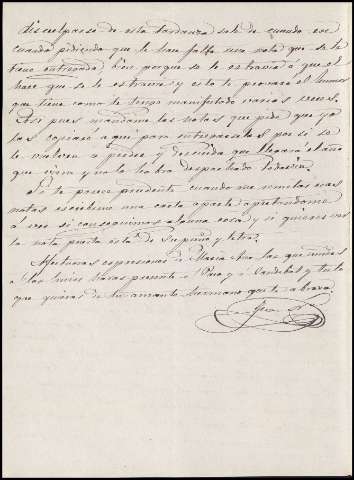 disculparse de esta tardanza sale de cuando en
cuando pidiendo que le hace falta una nota que se le
tiene entregada, bien porque se le estravia ó que el
hace que se le estravie y esto te provará el humor
que tiene como te tengo manifestado varias veces.
Asi pues mandame las notas que pide que yo
las copiaré aqui para entregarselas por si se
le vuelven á perder y descuida que llegará el año
que viene y no lo habra despachado todavia.
Si te parece prudente cuando me remitas esas
notas escribeme una carta aparte apretandome
á ver si conseguimos alguna cosa y si quieres ver
la nota puesta esta de su puño y letra.
Afectuosas espresiones de Maria Ana las que uniras
a las mias para Pepa y á y tu lo
que quieras de tu amante hermano que te abraza.